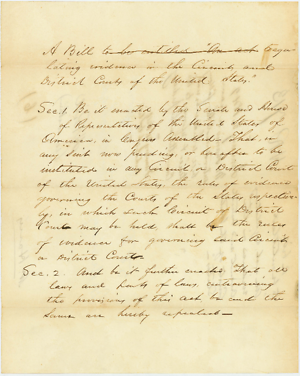 A Bill to be entitled "An act to regu-
lating evidence in the Circuit and
District Courts of the United States."
Sec. 1. Be it enacted by the Senate and House
of Representatives of the United States of
America, in Congress Assembled, That, in
any Suit now pending, or hereafter to be
instituted in any Circuit or District Court
of the United States, the rules of evidence
governing the Courts of the States respective-
ly, in which such Circuit or District
Court may be held, shall be the rules
of evidence for governing said Circuit
or District Court.
Sec. 2. And be it further enacted, That all
laws and parts of laws, contravening
the provisions of this act be and the
same are hereby repealed—